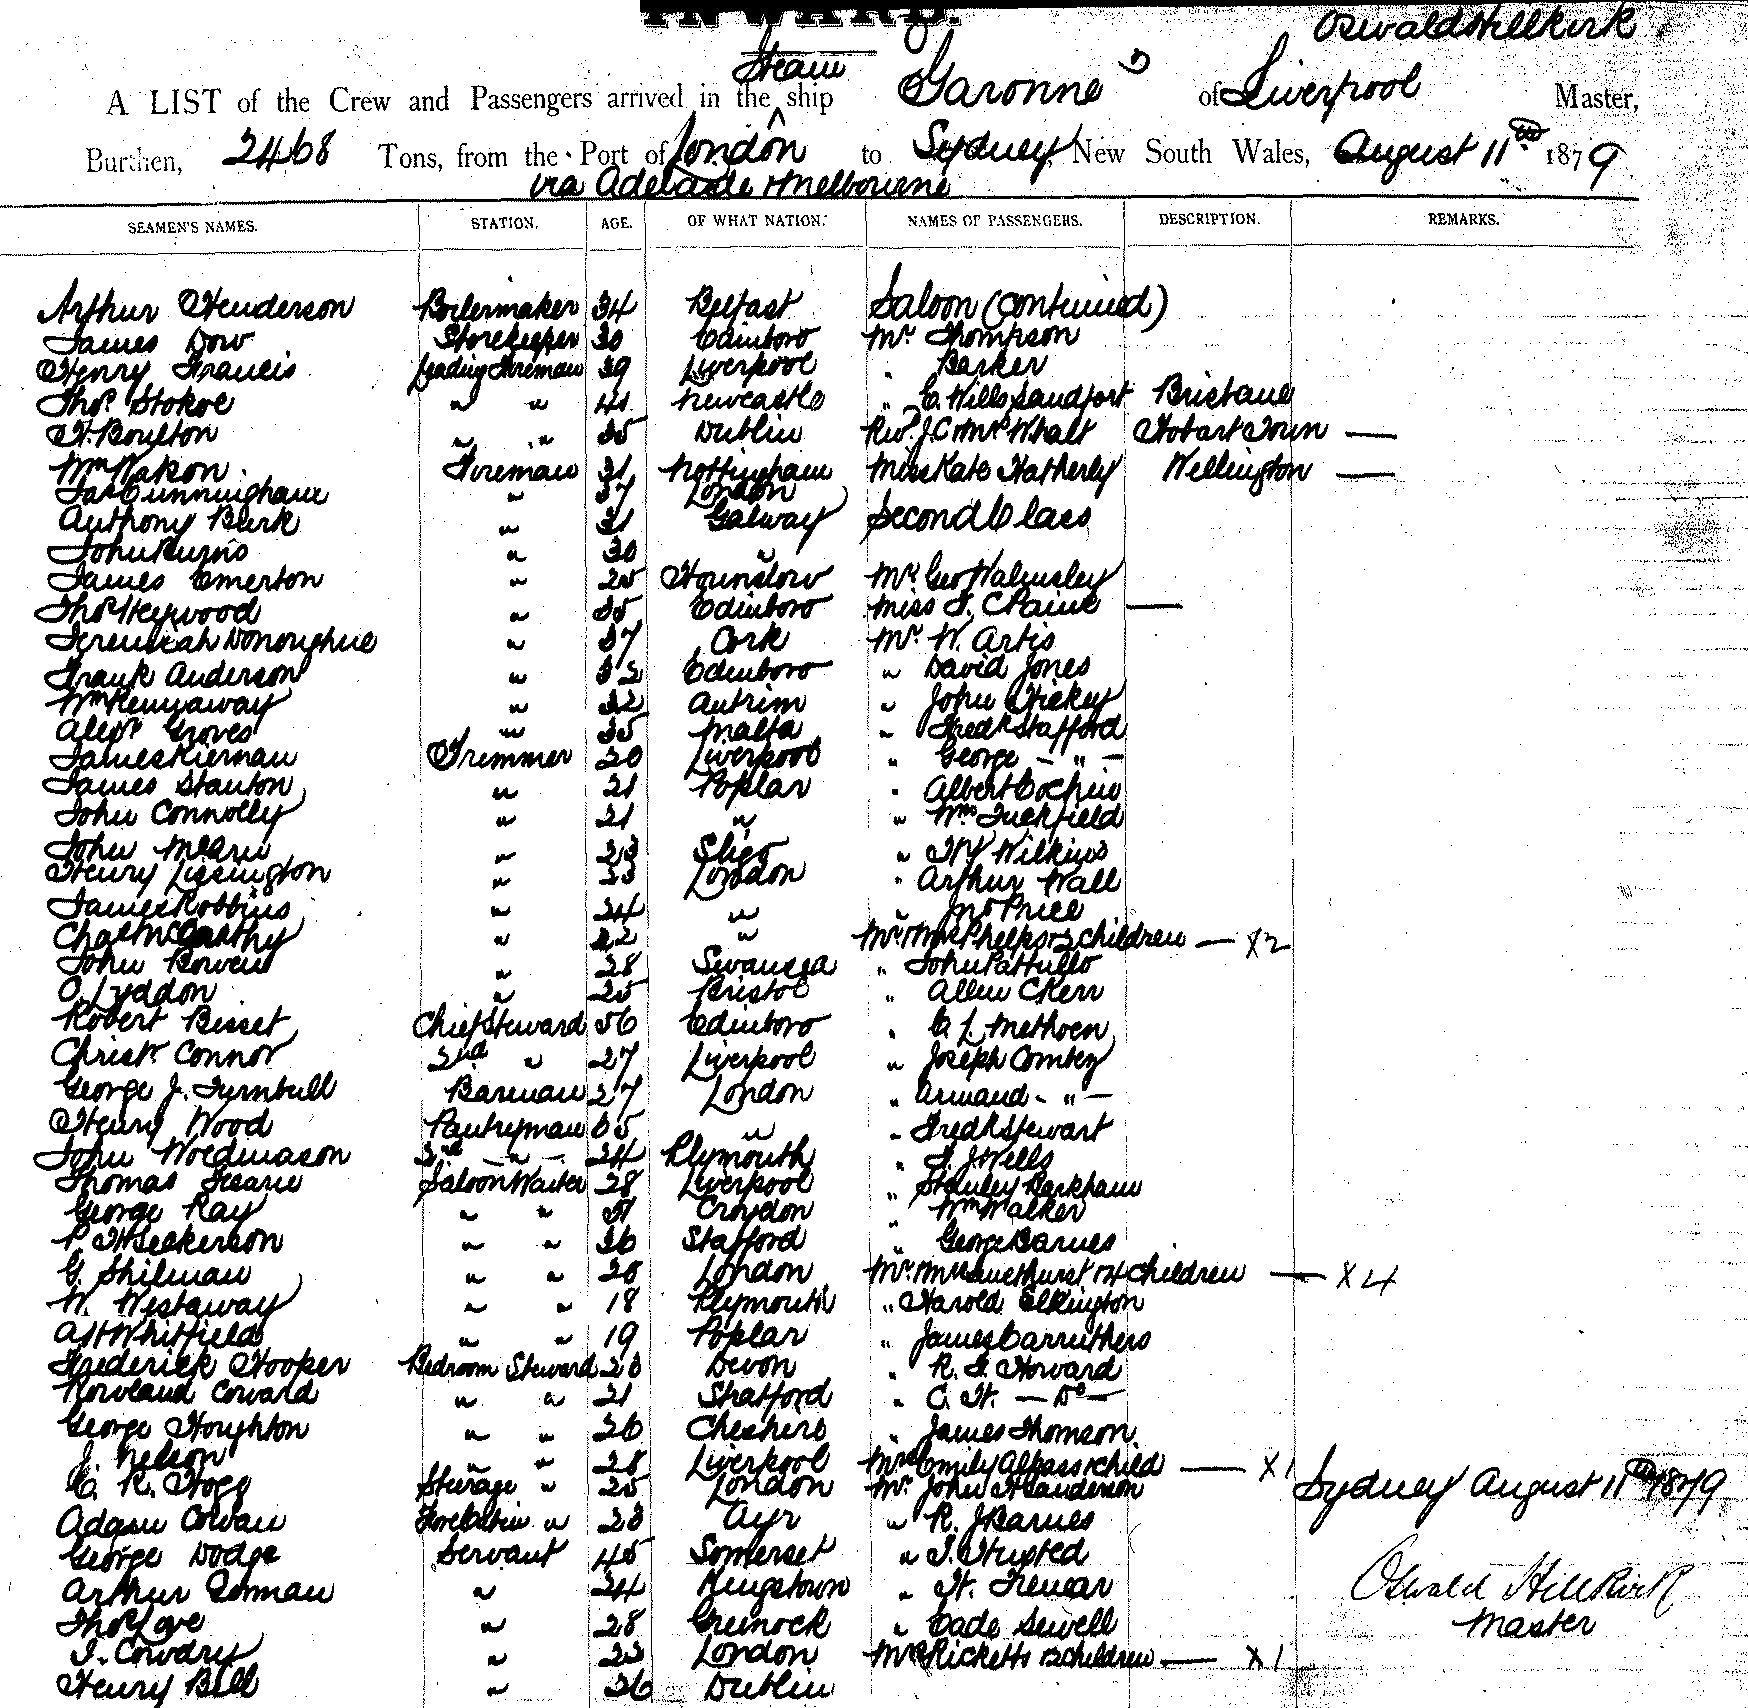 INWARD.
Oswald Hillkirk
Steam
A LIST of the Crew and Passengers arrived in the ship Garonne of Liverpool Master,
Burthen, 2468 Tons, from the Port of London to Sydney, New South Wales, August 11th 1879
via Adelaide & Melbourne
SEAMEN'S NAMES. STATION. AGE. OF WHAT NATION. NAMES OF PASSENGERS. DESCRIPTION. REMARKS.
Arthur Henderson Boilermaker 34 Belfast Saloon (Continued)
James Dow Storekeeper 30 Edinboro Mr. Thompson
Henry Francis Leading Fireman 39 Liverpool " Barker
Thos Stokoe " " 41 Newcastle " C. Wills Sandfort Brisbane
H. Boulton " " 35 Dublin Revd. J.C. & Mrs Whall Hobart Town —
Wm Fireman 31 Nottingham Miss Kate Hatherley Wellington —
Jas Cunningham " 37 London
Anthony Burk " 31 Galway Second Class
John Burns " 30 "
James Emerton " 25 Hounslow Mr. Geo Walmsley
Thos Heywood " 35 Edinboro Miss F. C Paine —
Jeremiah Donoughue " 37 Cork Mr. W. Artis
Frank Anderson " 32 Edinboro " David Jones
Wm Kennaway " 32 Antrim " John Hickey
Alexr Groves " 35 Malta " Fredk Stafford
James Kiernan Trimmer 20 Liverpool " George — " —
James Stanton " 21 Poplar " Albert Cochin
John Connolly " 21 " " Wm Tuckfield
John " 23 Sligo " Wilkins
Henry Lissington " 23 London " Arthur Wall
James Robbins " 24 " " Jno Price
Chas McCarthy " 22 " Mr. & Mrs Phelps & 2 children — X2
John Bowen " 28 Swansea " John Pattullo
O. Lyddon " 25 Bristol " Allen C Kerr
Robert Bisset Chief Steward 56 Edinboro " C. L. Methven
Christr Connor 2nd " 27 Liverpool " Joseph Comtez
George J. Turnbull Barman 27 London " Armand - " —
Henry Wood Pantryman 35 " " Fredk Stewart
John Woedmason 2nd — " — 24 Plymouth " F. J Wells
Thomas Fearn Saloon Waiter 28 Liverpool " Stanley Parkham
George Ray " " 31 Croydon " Wm Walker
P. " " 36 Stafford " George Barnes
G. Shilman " " 20 London Mr. & Mrs & 4 children — X 4
W. Westaway " " 18 Plymouth " Harold Elkington
Alf Whitfield " " 19 Poplar " James Carruthers
Frederick Hooper Bedroom Steward 23 Devon " R. F. Howard
Rowland Coward " " 21 Stratford " C. H. — Do —
George Houghton " " 26 Cheshire " James Thomson
J. Nelson " " 28 Liverpool Mrs Emily Alpass & child — X1
C. R. Hogg Steerage " 25 London Mr. John H Sanderson
Sydney August 11th 1879
Adam Cowan Forecabin " 23 Ayr " R. J Barnes
George Dodge Servant 45 Somerset " T. Husted
Oswald Hillkirk
Arthur " 24 Kingstown " H.
Master
Thos Love " 28 Greenock " Eade Sewell
J. Cowdry " 23 London Mrs Ricketts & 2 children — X1
Henry Bell " 26 Dublin